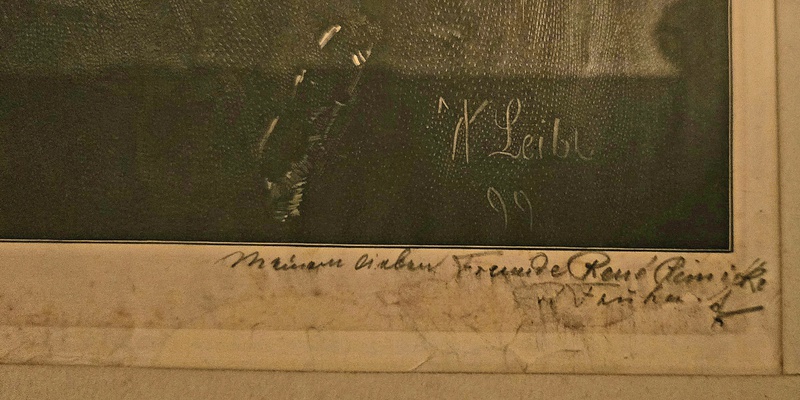 W Leibl
99
Meinem lieben Freunde René Reinicke